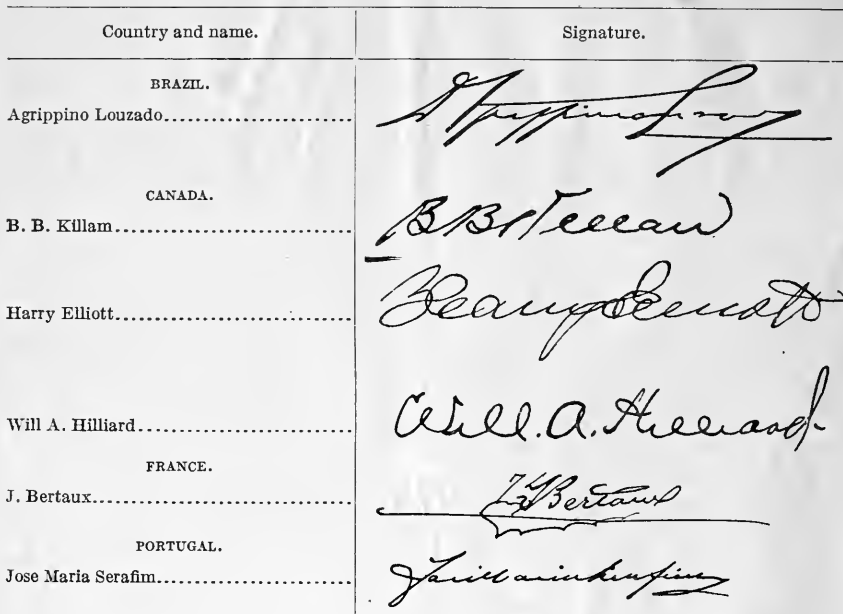 Country and name. Signature.
BRAZIL.
Agrippino Louzado........................... Agrippino Louzado
CANADA.
B. B. Killam................................... B B Killam
Harry Elliott................................... Harry Elliott
Will A. Hilliard................................ Will. A. Hilliard
FRANCE.
J. Bertaux...................................... J Bertaux
PORTUGAL.
Jose Maria Serafim......................... Jose Maria Serafim